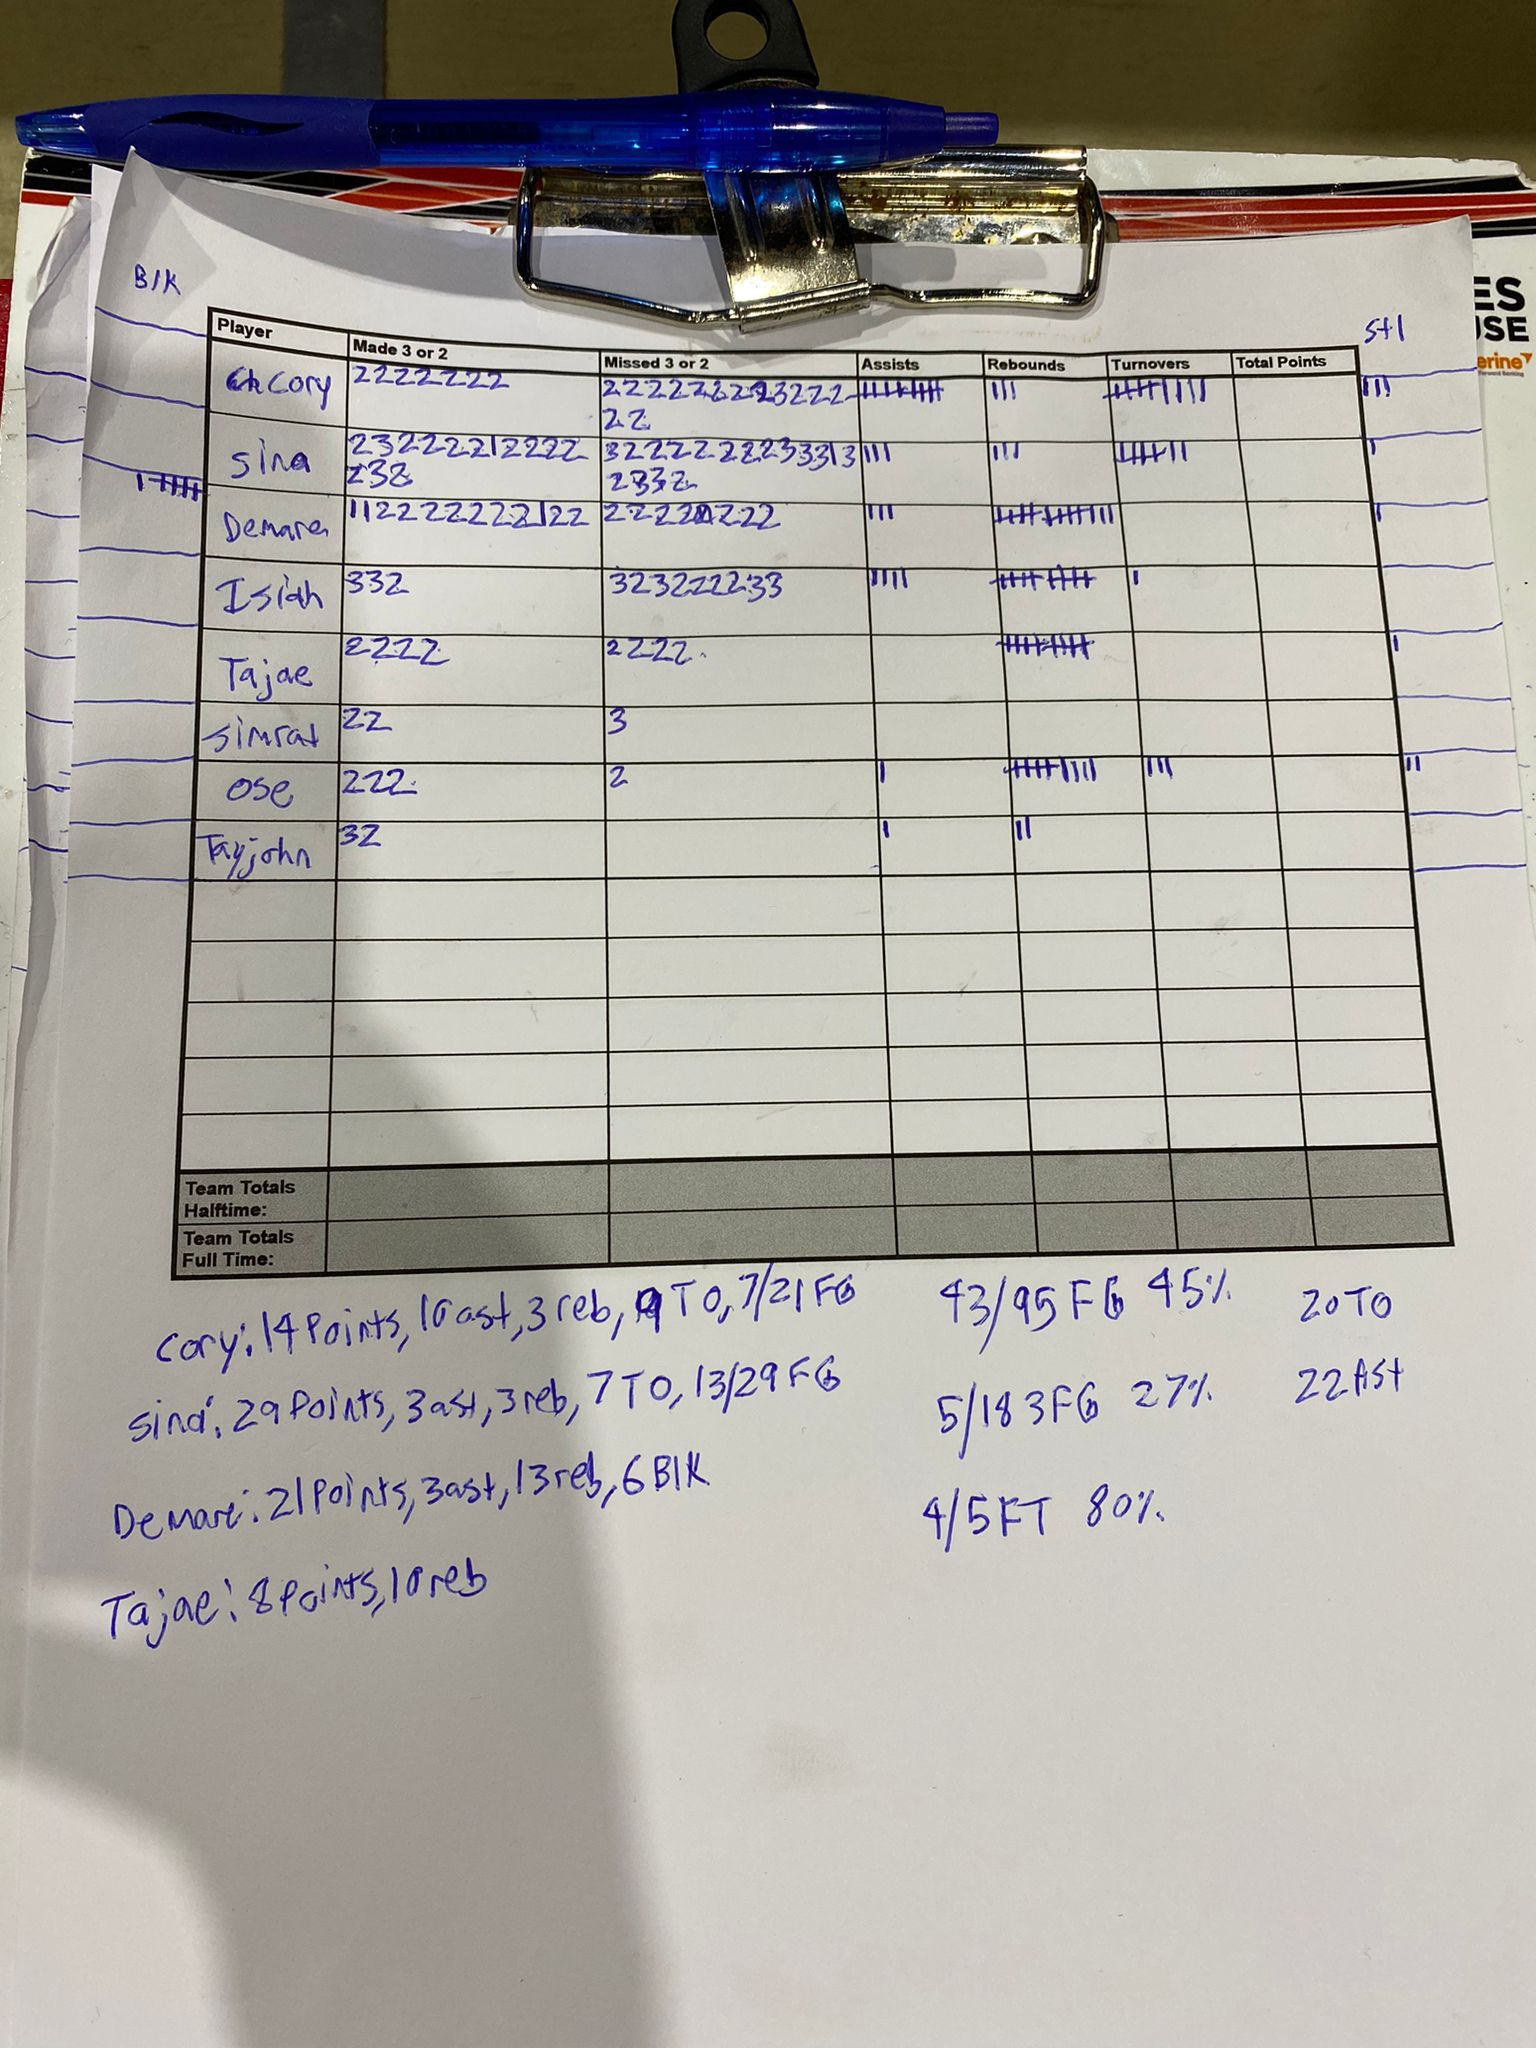 BlK
stl
ES
USE
erine
Player Made 3 or 2 Missed 3 or 2 Assists Rebounds Turnovers Total Points
Cory 2222222
22
Sina
232
Demare 1122222222122
Isiah 332 323222233 |||| |
Tajae 2222 2222 |
Simrat 22 3
Ose 222 2 | ||| ||
Tayjohn 32 | ||
Team Totals
Halftime:
Team Totals
Full Time:
Cory: 14 Points, 10 ast, 3 reb, 9 TO, 7/21 FG
43/95 FG 45% 20 TO
Sina: 29 Points, 3 ast, 3 reb, 7 TO, 13/29 FG
5/18 3FG 27% 22 Ast
Demare: 21 Points, 3 ast, 13 reb, 6 BlK
4/5 FT 80%
Tajae: 8 Points, 10 reb